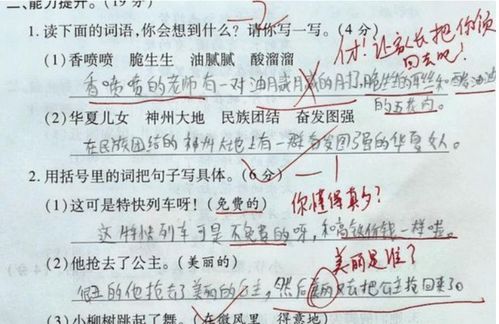 二、能力提升。(19分)
1.读下面的词语,你会想到什么?请你写一写。(4分)
(1)香喷喷 脆生生 油腻腻 酸溜溜
你才!让家长把你领
回去吧!
香喷喷的老师有一对油腻腻的
的五花肉。
(2)华夏儿女 神州大地 民族团结 奋发图强
在民族团结的神州大地上有一群奋发图强的华夏女人。
2.用括号里的词把句子写具体。(6分)
(1)这可是特快列车呀!(免费的)
你懂得真多?
这特快列车可是不免费的呀,和高铁价钱一样啦。
(2)他抢去了公主。(美丽的)
美丽是谁?
的他抢去了美丽的公主,然后美丽又去把公主抢回来了。
(3)小柳树跳起了舞。(在微风里 得意地)